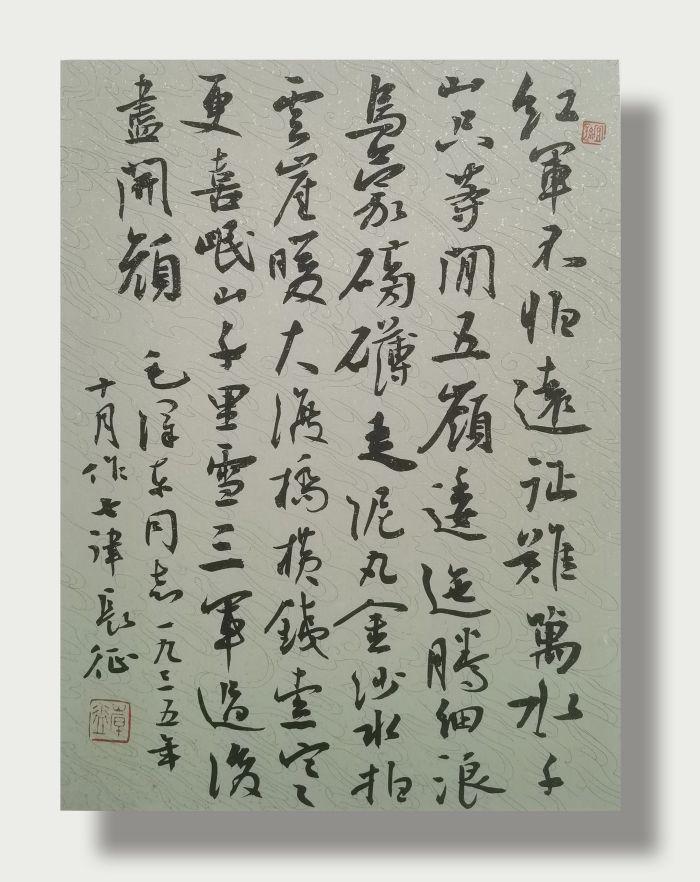 紅軍不怕遠征難萬水千
山只等閒五嶺逶迤騰細浪
烏蒙磅礴走泥丸金沙水拍
雲崖暖大渡橋橫鐵索寒
更喜岷山千里雪三軍過後
盡開顏
毛澤東同志一九三五年
十月作七律長征